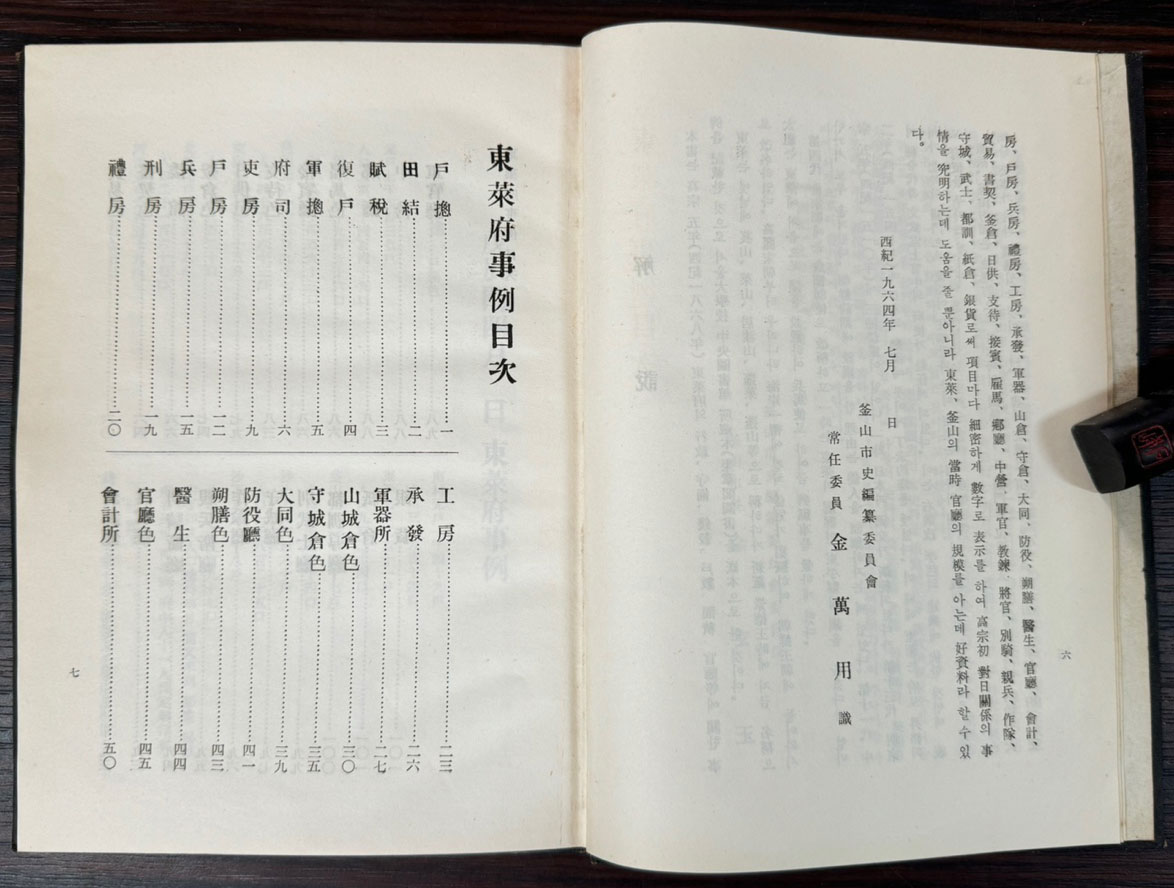 房、戶房、兵房、禮房、工房、承發、軍器、山倉、守倉、大同、防役、朔膳、醫生、官廳、會計、
貿易、書契、釜倉、日供、支待、接賓、雇馬、鄕廳、中營、軍官、敎鍊、將官、別騎、親兵、作隊、
守城、武士、都訓、紙倉、銀貨로써 項目마다 細密하게 數字로 表示를 하여 高宗初 對日關係의 事
情을 究明하는데 도움을 줄 뿐아니라 東萊、釜山의 當時 官廳의 規模를 아는데 好資料라 할수 있
다。
西紀一九六四年 七月 日
釜山市史編纂委員會
常任委員 金萬用 識
六
東萊府事例目次
戶摠 一
田結 二
賦稅 三
復戶 四
軍摠 五
府司 六
吏房 九
戶房 一二
兵房 一五
刑房 一九
禮房 二〇
工房 二三
承發 二六
軍器所 二七
山城倉色 三〇
守城倉色 三五
大同色 三九
防役廳 四一
朔膳色 四三
醫生 四四
官廳色 四五
會計所 五〇
七